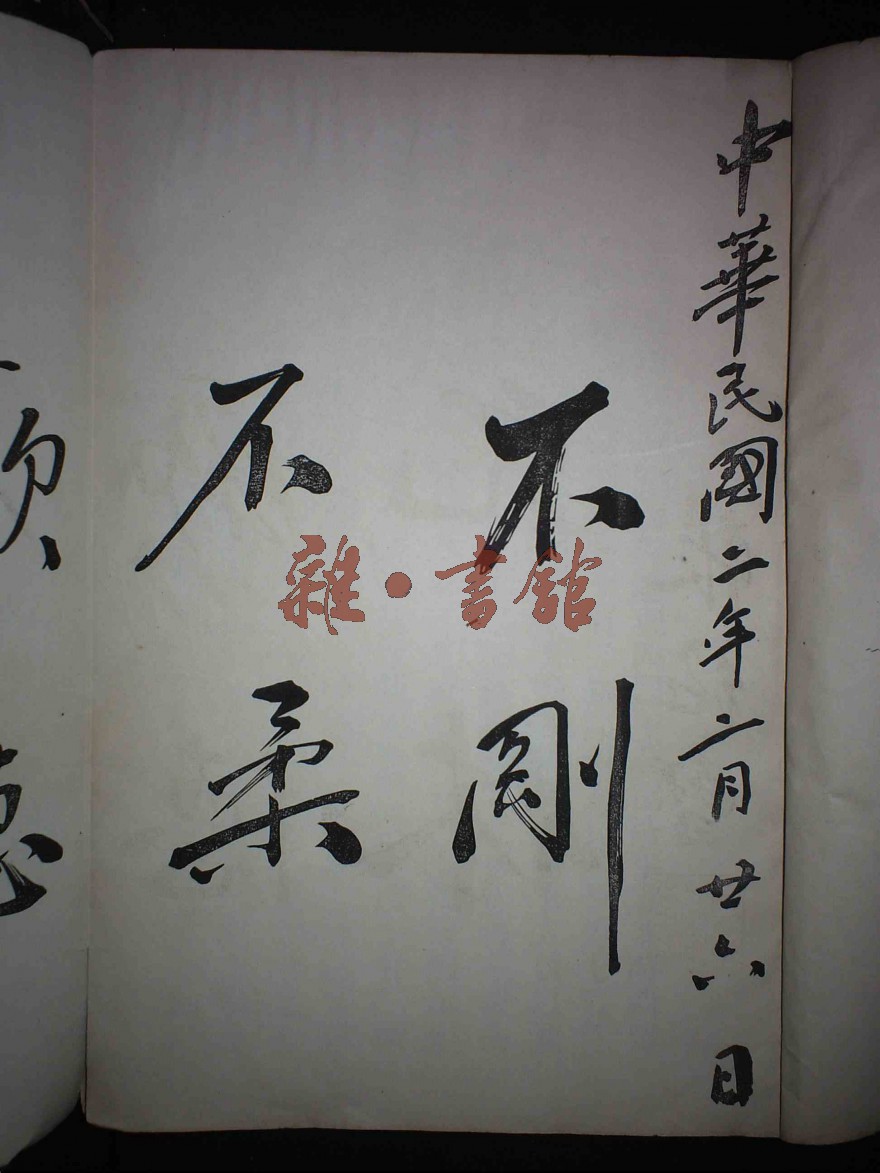 中華民國二年二月廿六日
不剛
不柔
雜·書館